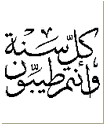 كُلُّ سَنَة
وَأَنْتُمْ طَيِّبُون